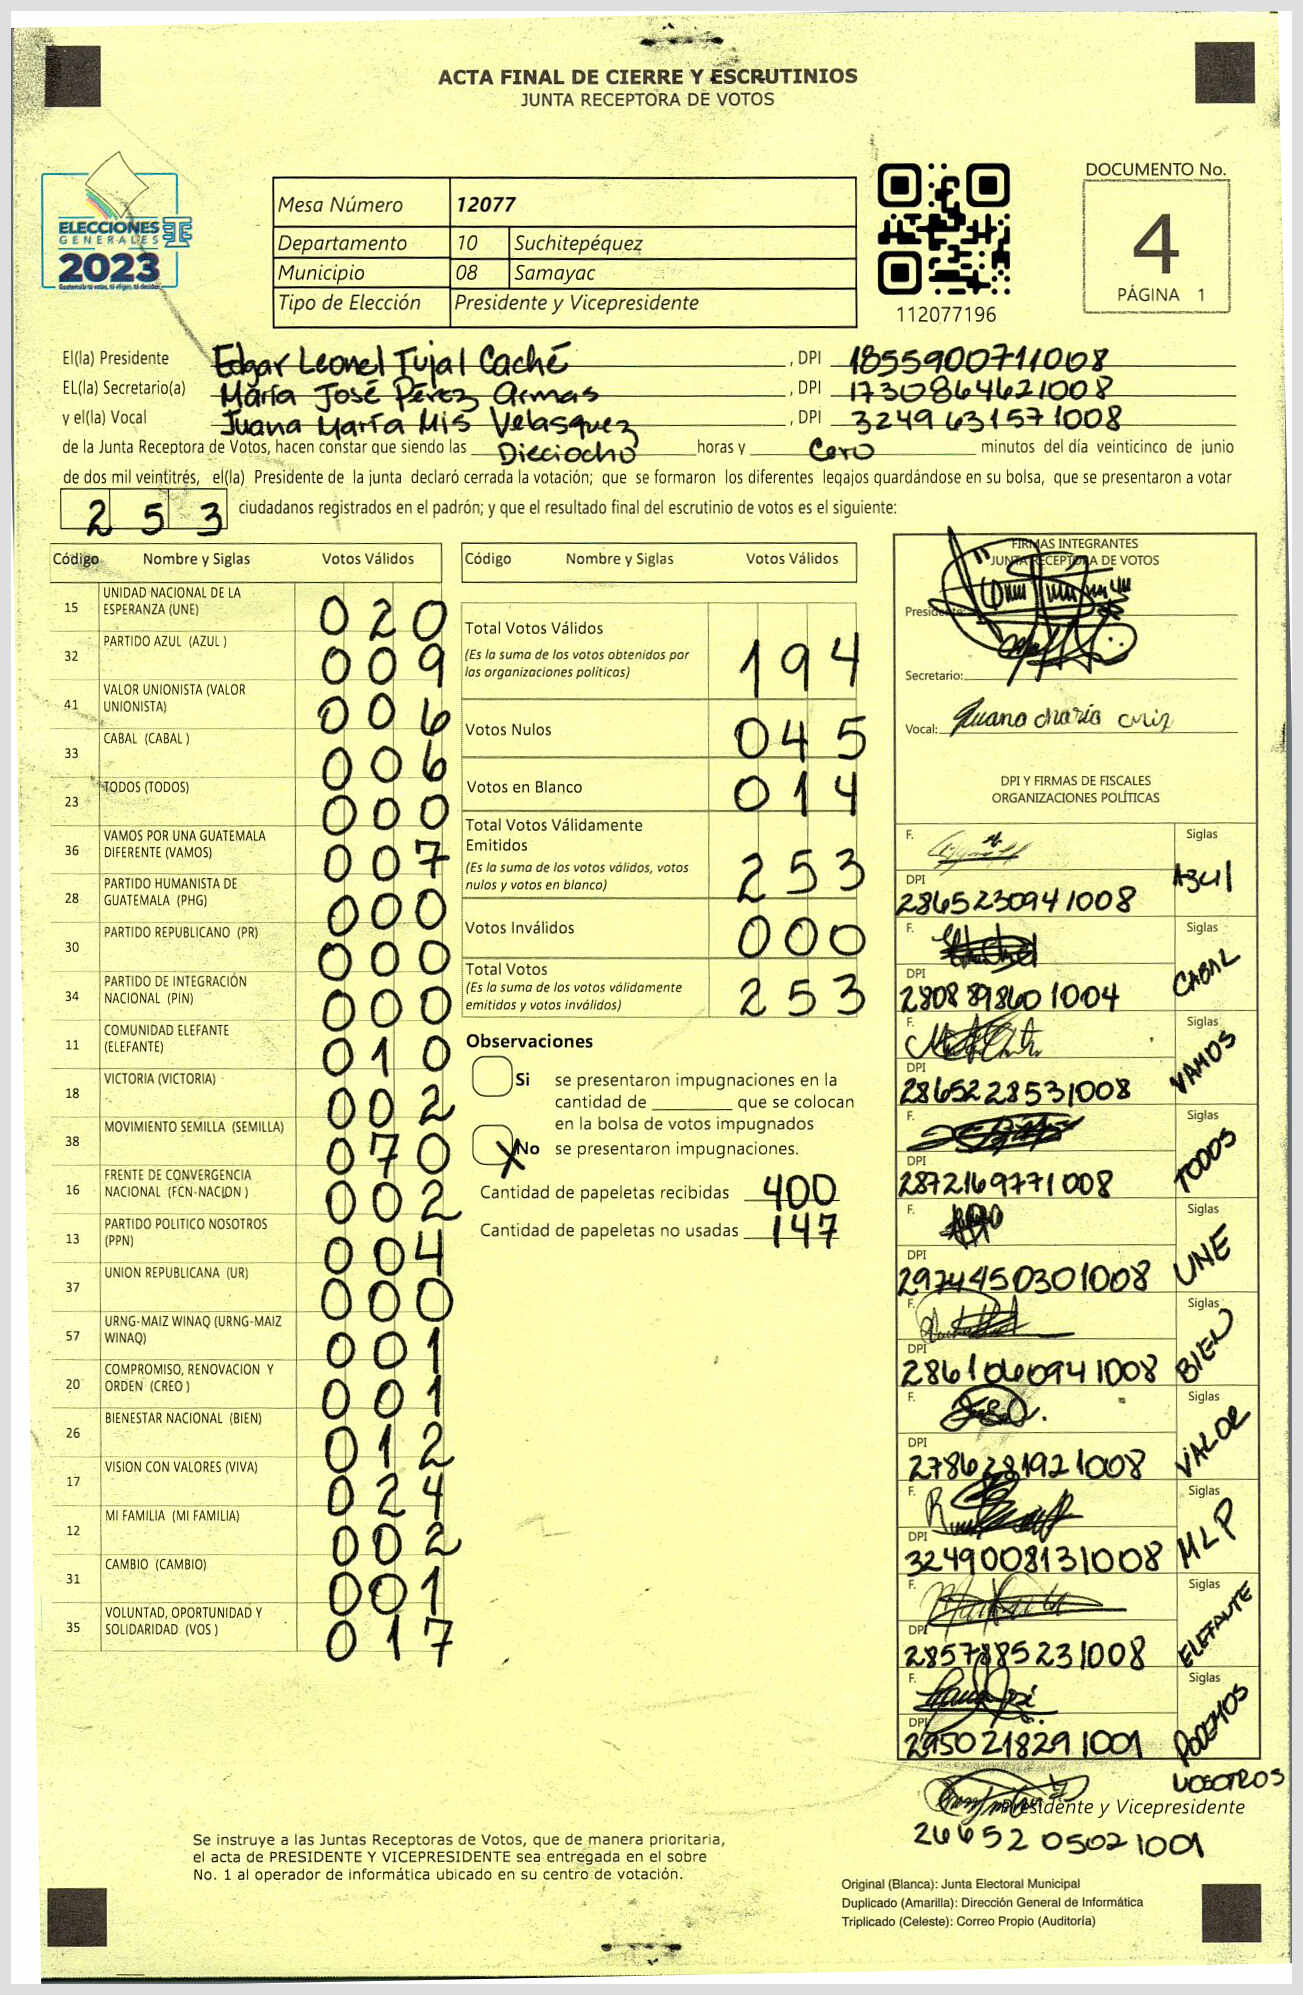 ACTA FINAL DE CIERRE Y ESCRUTINIOS
JUNTA RECEPTORA DE VOTOS
ELECCIONES
GENERALES
2023
TSE
Mesa Número 12077
Departamento 10 Suchitepéquez
Municipio 08 Samayac
Tipo de Elección Presidente y Vicepresidente
112077196
DOCUMENTO No.
4
PÁGINA 1
El(la) Presidente Edgar Leonel Tujal Caché , DPI 1855900711008
EL(la) Secretario(a) María José Pérez Armas , DPI 1730864621008
y el(la) Vocal Juana María Mis Velasquez , DPI 3249631571008
de la Junta Receptora de Votos, hacen constar que siendo las Dieciocho horas y Cero minutos del día veinticinco de junio
de dos mil veintitrés, el(la) Presidente de la junta declaró cerrada la votación; que se formaron los diferentes legajos guardándose en su bolsa, que se presentaron a votar
253 ciudadanos registrados en el padrón; y que el resultado final del escrutinio de votos es el siguiente:
Código Nombre y Siglas Votos Válidos
15 UNIDAD NACIONAL DE LA ESPERANZA (UNE) 020
32 PARTIDO AZUL (AZUL ) 009
41 VALOR UNIONISTA (VALOR UNIONISTA) 006
33 CABAL (CABAL ) 006
23 TODOS (TODOS) 000
36 VAMOS POR UNA GUATEMALA DIFERENTE (VAMOS) 007
28 PARTIDO HUMANISTA DE GUATEMALA (PHG) 000
30 PARTIDO REPUBLICANO (PR) 000
34 PARTIDO DE INTEGRACIÓN NACIONAL (PIN) 000
11 COMUNIDAD ELEFANTE (ELEFANTE) 010
18 VICTORIA (VICTORIA) 002
38 MOVIMIENTO SEMILLA (SEMILLA) 070
16 FRENTE DE CONVERGENCIA NACIONAL (FCN-NACION ) 002
13 PARTIDO POLITICO NOSOTROS (PPN) 004
37 UNION REPUBLICANA (UR) 000
57 URNG-MAIZ WINAQ (URNG-MAIZ WINAQ) 001
20 COMPROMISO, RENOVACION Y ORDEN (CREO ) 001
26 BIENESTAR NACIONAL (BIEN) 012
17 VISION CON VALORES (VIVA) 024
12 MI FAMILIA (MI FAMILIA) 002
31 CAMBIO (CAMBIO) 001
35 VOLUNTAD, OPORTUNIDAD Y SOLIDARIDAD (VOS ) 017
Código Nombre y Siglas Votos Válidos
Total Votos Válidos 194
(Es la suma de los votos obtenidos por
las organizaciones políticas)
Votos Nulos 045
Votos en Blanco 014
Total Votos Válidamente
Emitidos 253
(Es la suma de los votos válidos, votos
nulos y votos en blanco)
Votos Inválidos 000
Total Votos 253
(Es la suma de los votos válidamente
emitidos y votos inválidos)
Observaciones
Si se presentaron impugnaciones en la
cantidad de ________ que se colocan
en la bolsa de votos impugnados
X No se presentaron impugnaciones.
Cantidad de papeletas recibidas 400
Cantidad de papeletas no usadas 147
FIRMAS INTEGRANTES
JUNTA RECEPTORA DE VOTOS
Presidente:
Secretario:
Vocal: Juana María Mis
DPI Y FIRMAS DE FISCALES
ORGANIZACIONES POLÍTICAS
F. Siglas
DPI AZUL
2865230941008
F. Siglas
DPI CABAL
2808898601004
F. Siglas
DPI VAMOS
2865228531008
F. Siglas
DPI TODOS
2872169771008
F. Siglas
DPI UNE
2974450301008
F. Siglas
DPI BIEN
2861060941008
F. Siglas
DPI VALOR
2786281921008
F. Siglas
DPI MLP
3249008131008
F. Siglas
DPI ELEFANTE
2857885231008
F. Siglas
DPI PODEMOS
2950218291001
NOSOTROS
Presidente y Vicepresidente
2665205021001
Se instruye a las Juntas Receptoras de Votos, que de manera prioritaria,
el acta de PRESIDENTE Y VICEPRESIDENTE sea entregada en el sobre
No. 1 al operador de informática ubicado en su centro de votación.
Original (Blanca): Junta Electoral Municipal
Duplicado (Amarilla): Dirección General de Informática
Triplicado (Celeste): Correo Propio (Auditoría)